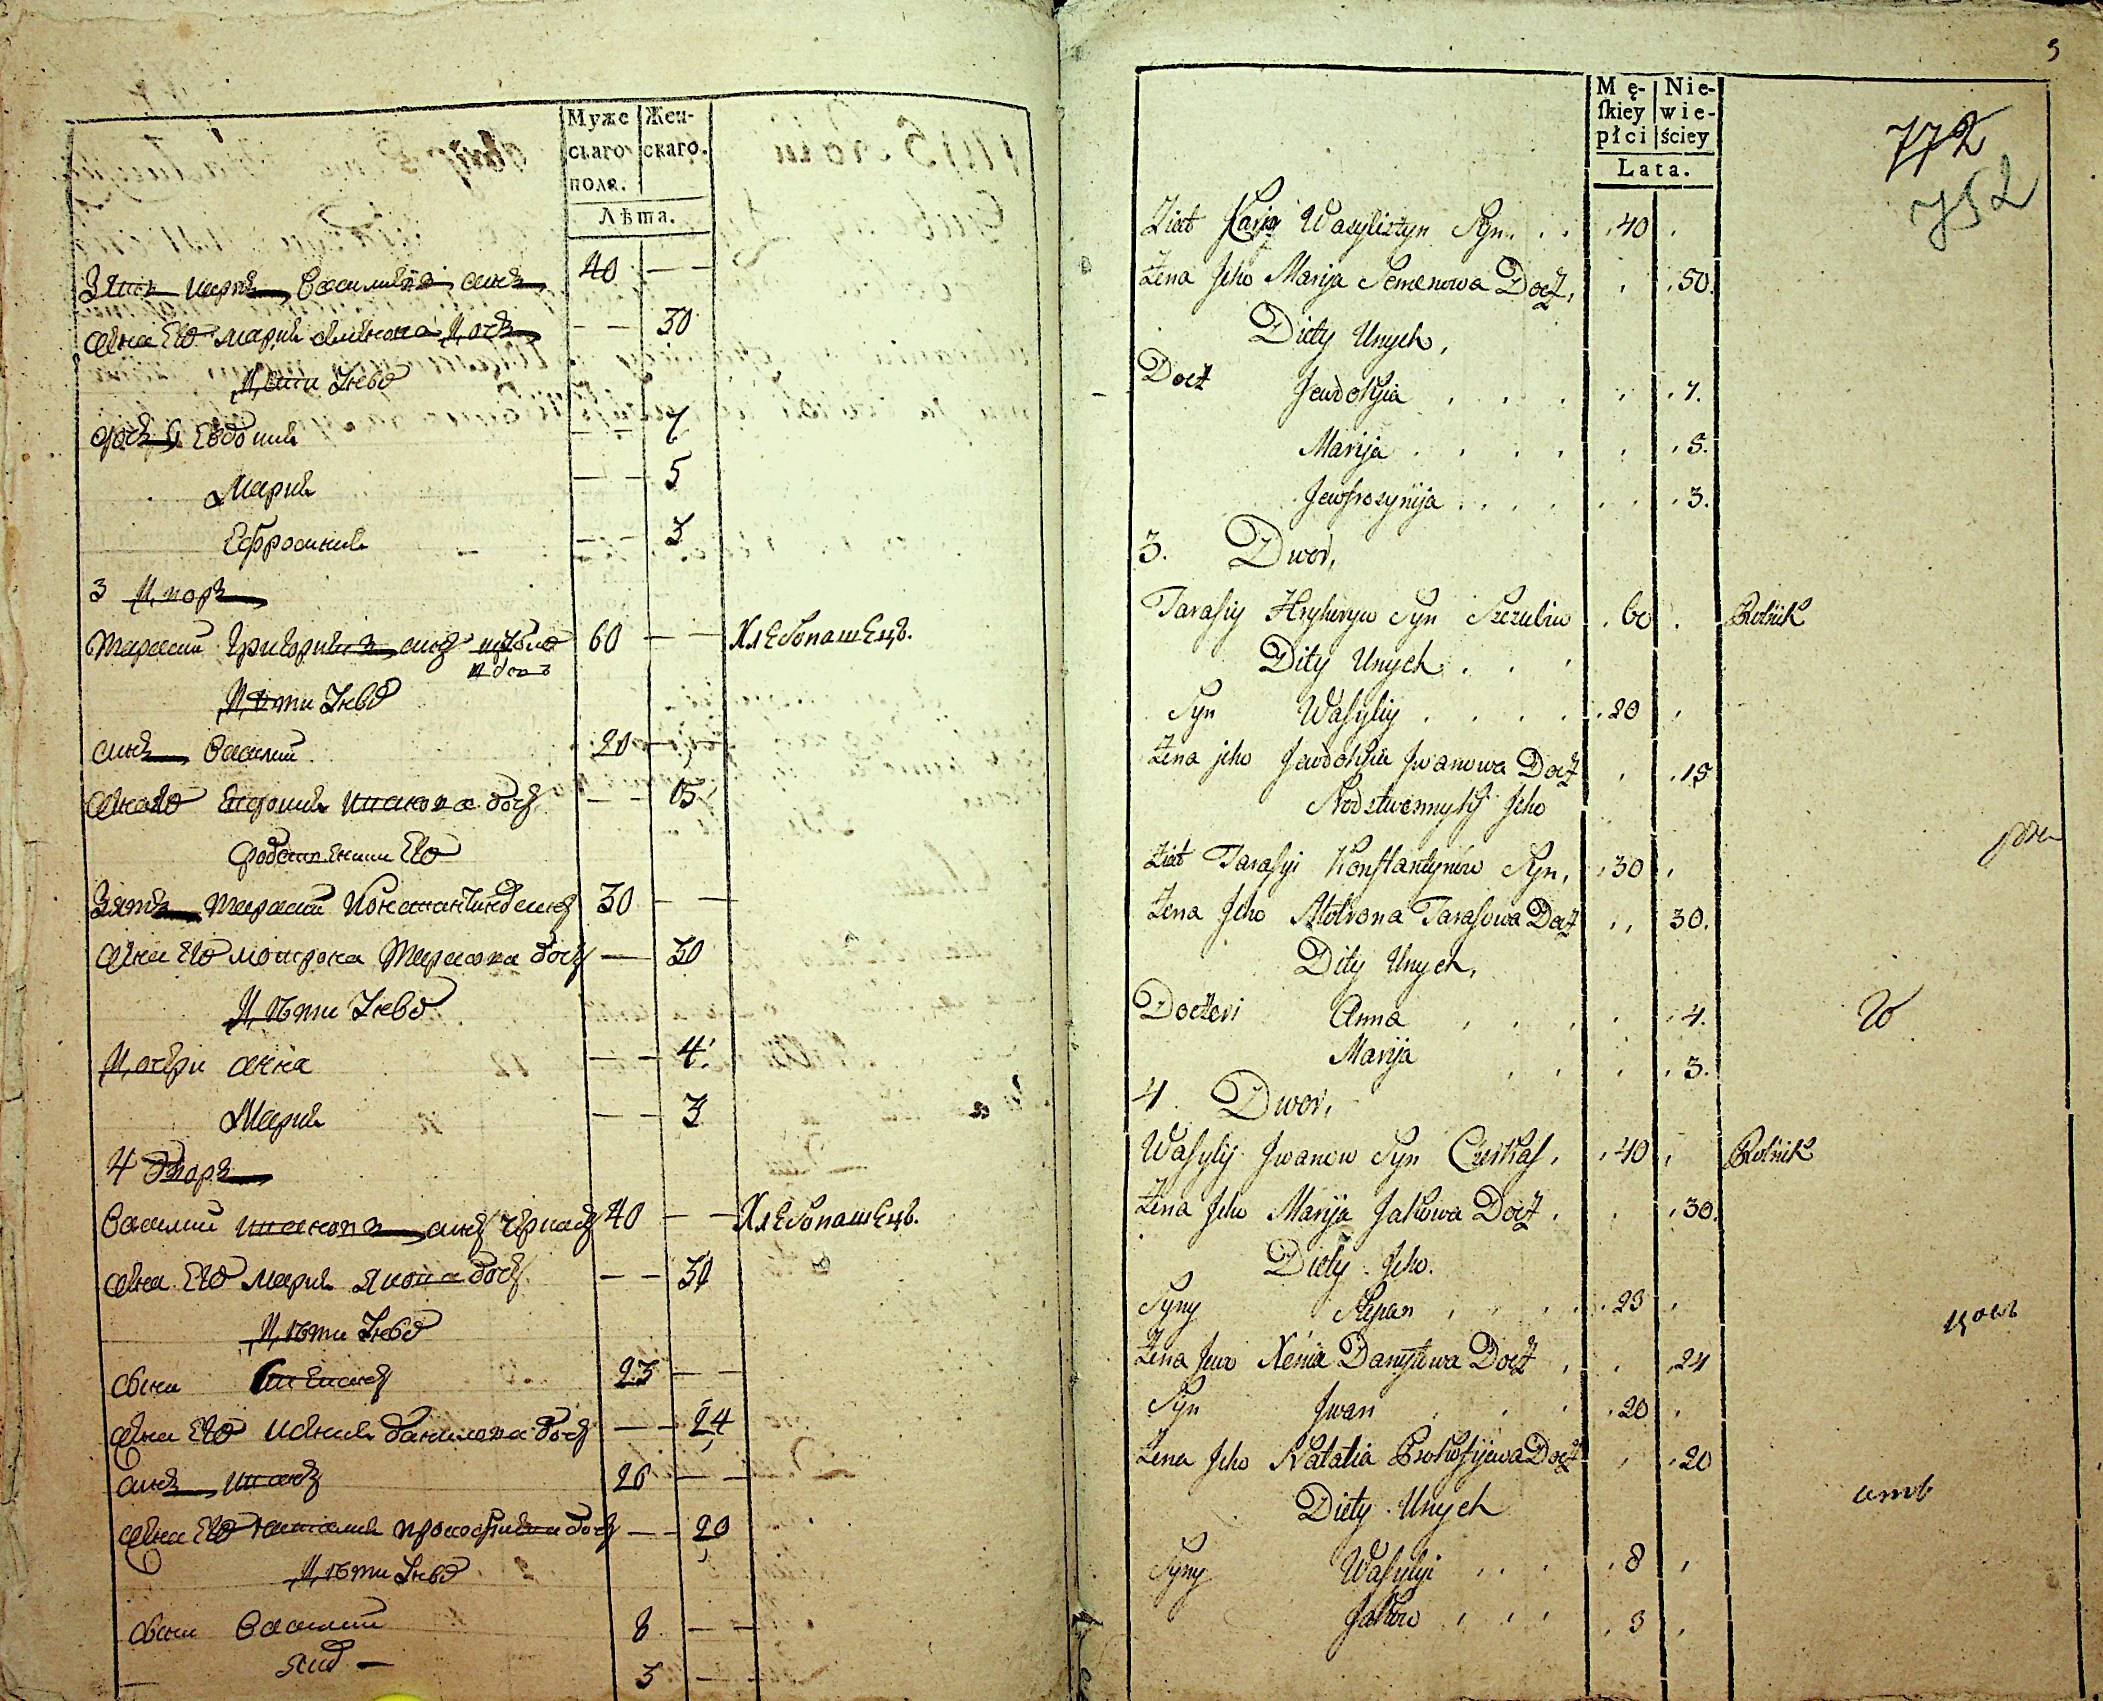 Муже
скаго
поля.
Жен-
скаго.
Лѣта.
Зять Василиевъ синъ 40 — —
жена Его Мария Дочь — — 30
Дѣти Унеѣ
Дочь Евдокия — — 7
Мария — — 5
Ефросиния — — 3
3 Дворъ
Тарасий Григориевъ синъ 60 — — Хлебопашецъ.
Дѣти Унеѣ
синъ Василий 20 — —
жена его Евдокия Иванова дочь — — 15
Родственники Его
Зять Тарасий Константиновъ синъ 30 — —
жена Его Мотрона Тарасова дочь — 30
Дѣти Унеѣ
Дочери анна — — 4
Мария — — 3
4 Дворъ
Василий Ивановъ синъ 40 — — Хлебопашецъ.
жена Его Мария Якова дочь — — 30
Дѣти Унеѣ
сыни Степанъ 23 — —
жена Его Ксения Данилова дочь — — 24
синъ Иванъ 20 — —
жена Его Наталия Прокофиева дочь — — 20
Дѣти Унеѣ
сыни Василий 8 — —
3 —
5
Mę-
ſkiey
płci
Nie-
wie-
ściey
Lata.
772
752
Ziat Wasylistyn Syn. 40
Żena Jeho Marija Semenowa Docz, 50.
Diety Unych,
Docz Jewdokija 7.
Marija 5.
Jewfrosynija 3.
3. Dwor,
Tarasiy Hryhuryw Syn 60 Rolnik
Dity Unych
Syn Wasyliy 20
Żena jeho Jewdokija Jwanowa Docz 15
Rodztwennyky Jeho
Ziat Tarasyi Konstantynów Syn, 30
Żena Jeho Motrona Tarasowa Docz 30.
Dity Unych,
Doczeri Anna 4.
Marija 3.
4 Dwor,
Wasylij Jwanow Syn Czerkas, 40 Rolnik
Żena Jeho Marija Jakowa Docz 30.
Diety Jeho.
Syny Stepan 23
Żena Jeho Xenia Danyłowa Docz 24
Syn Jwan 20
Żena Jeho Natalia Prokofijewa Docz 20
Diety Unych
Syny Wasylyi 8
Jakow 3